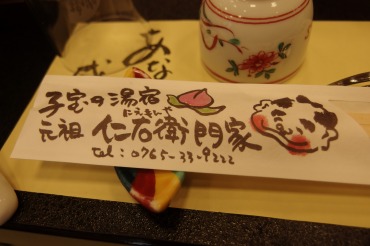 あな
子宝の湯宿
にえもんや
元祖 仁右衛門家
tel:0765-33-9222